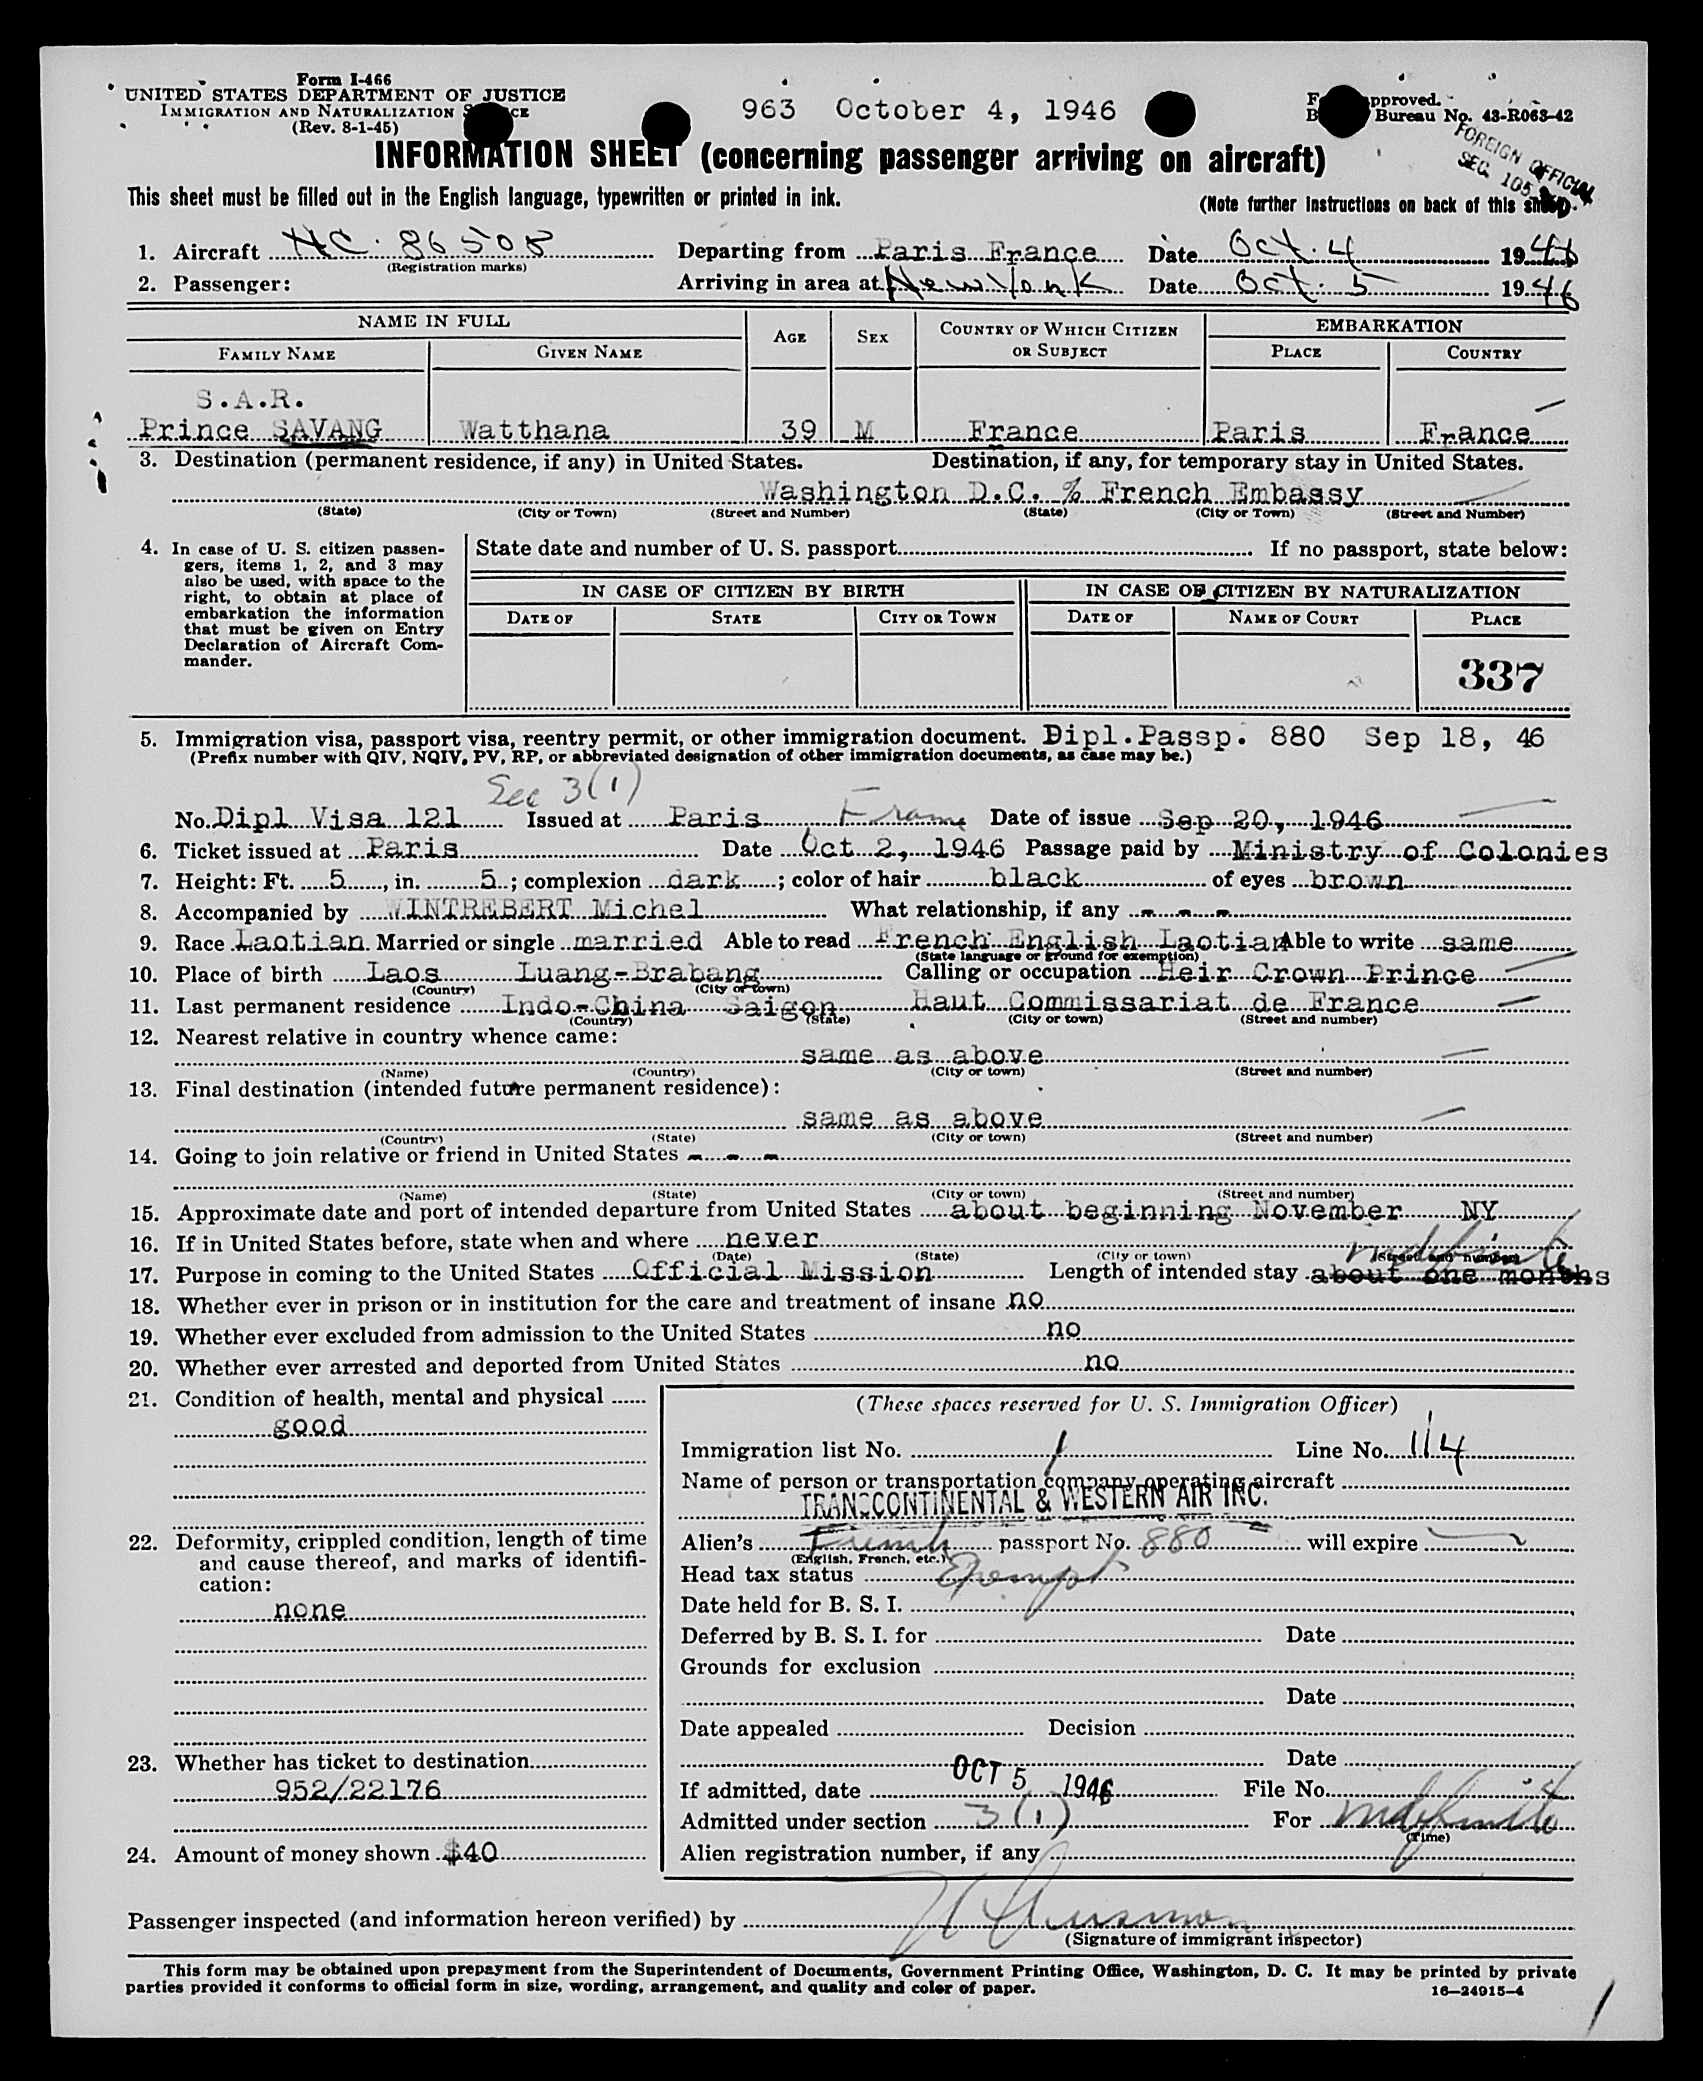 Form I-466
UNITED STATES DEPARTMENT OF JUSTICE
IMMIGRATION AND NATURALIZATION
(Rev. 8-1-45)
963 October 4, 1946
pproved.
Bureau No. 43-R063-42
FOREIGN OFFICIAL
SEC. 105
INFORMATION SHEET (concerning passenger arriving on aircraft)
This sheet must be filled out in the English language, typewritten or printed in ink.
(Note further instructions on back of this sheet)
1. Aircraft NC. 86505 Departing from Paris France Date Oct. 4 1946
(Registration marks)
2. Passenger: Arriving in area at New York Date Oct. 5 1946
NAME IN FULL AGE SEX COUNTRY OF WHICH CITIZEN OR SUBJECT EMBARKATION
FAMILY NAME GIVEN NAME PLACE COUNTRY
S.A.R.
Prince SAVANG Watthana 39 M France Paris France
3. Destination (permanent residence, if any) in United States. Destination, if any, for temporary stay in United States.
Washington D.C. % French Embassy
(State) (City or Town) (Street and Number) (State) (City or Town) (Street and Number)
4. In case of U. S. citizen passengers, items 1, 2, and 3 may also be used, with space to the right, to obtain at place of embarkation the information that must be given on Entry Declaration of Aircraft Commander.
State date and number of U. S. passport If no passport, state below:
IN CASE OF CITIZEN BY BIRTH IN CASE OF CITIZEN BY NATURALIZATION
DATE OF STATE CITY OR TOWN DATE OF NAME OF COURT PLACE
337
5. Immigration visa, passport visa, reentry permit, or other immigration document. Dipl.Passp. 880 Sep 18, 46
(Prefix number with QIV, NQIV, PV, RP, or abbreviated designation of other immigration documents, as case may be.)
Sec 3(1)
No. Dipl Visa 121 Issued at Paris France Date of issue Sep 20, 1946
6. Ticket issued at Paris Date Oct 2, 1946 Passage paid by Ministry of Colonies
7. Height: Ft. 5, in. 5; complexion dark; color of hair black of eyes brown
8. Accompanied by WINTREBERT Michel What relationship, if any - - -
9. Race Laotian Married or single married Able to read French English Laotian Able to write same
(State language or ground for exemption)
10. Place of birth Laos Luang-Brabang Calling or occupation Heir Crown Prince
(Country) (City or town)
11. Last permanent residence Indo-China Saigon Haut Commissariat de France
(Country) (State) (City or town) (Street and number)
12. Nearest relative in country whence came:
same as above
(Name) (Country) (City or town) (Street and number)
13. Final destination (intended future permanent residence):
same as above
(Country) (State) (City or town) (Street and number)
14. Going to join relative or friend in United States - - -
(Name) (State) (City or town) (Street and number)
15. Approximate date and port of intended departure from United States about beginning November NY
16. If in United States before, state when and where never
(Date) (State) (City or town) (Street and number)
indefinite
17. Purpose in coming to the United States Official Mission Length of intended stay about one months
18. Whether ever in prison or in institution for the care and treatment of insane no
19. Whether ever excluded from admission to the United States no
20. Whether ever arrested and deported from United States no
21. Condition of health, mental and physical
good
22. Deformity, crippled condition, length of time and cause thereof, and marks of identification:
none
23. Whether has ticket to destination
952/22176
24. Amount of money shown $40
(These spaces reserved for U. S. Immigration Officer)
Immigration list No. 1 Line No. 114
Name of person or transportation company operating aircraft
TRANSCONTINENTAL & WESTERN AIR INC.
Alien's French passport No. 880 will expire
(English, French, etc.)
Head tax status Exempt
Date held for B. S. I.
Deferred by B. S. I. for Date
Grounds for exclusion
Date
Date appealed Decision
Date
If admitted, date OCT 5 1946 File No.
Admitted under section 3(1) For indefinite
(Time)
Alien registration number, if any
Passenger inspected (and information hereon verified) by
(Signature of immigrant inspector)
This form may be obtained upon prepayment from the Superintendent of Documents, Government Printing Office, Washington, D. C. It may be printed by private
parties provided it conforms to official form in size, wording, arrangement, and quality and color of paper.
16—24915-4
1